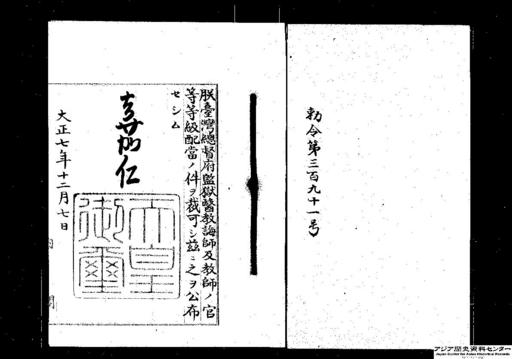 勅令第三百九十一号
朕臺灣總督府監獄醫教誨師及教師ノ官
等等級配當ノ件ヲ裁可シ茲ニ之ヲ公布
セシム
嘉仁
天皇
御璽
大正七年十二月七日
アジア歴史資料センター
Japan Center for Asian Historical Records